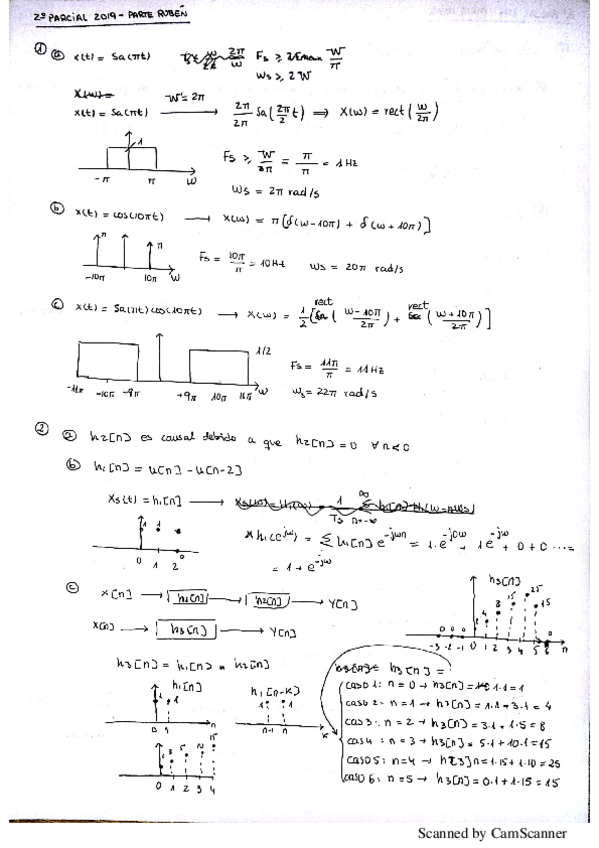 2º PARCIAL 2019 - PARTE RUBEN
① ⓐ x(t) = Sa(πt) Fs ≥ 2Fmax W/π
Ws ≥ 2W
X(w)=
x(t) = Sa(πt) W = 2π → 2π/2π Sa(2π/2 t) ⟹ X(w) = rect(w/2π)
1
-π π w
Fs ≥ W/π = π/π = 1 Hz
Ws = 2π rad/s
ⓑ x(t) = cos(10πt) → X(w) = π[δ(w-10π) + δ(w+10π)]
π π
-10π 10π w
Fs = 10π/π = 10Hz Ws = 20π rad/s
ⓒ x(t) = Sa(πt)cos(10πt) → X(w) = 1/2 [rect(w-10π/2π) + rect(w+10π/2π)]
1/2
-11π -10π -9π +9π 10π 11π w
Fs = 11π/π = 11Hz
Ws = 22π rad/s
② ⓐ h2[n] es causal debido a que h2[n] = 0 ∀n<0
ⓑ h1[n] = u[n] - u[n-2]
Xs(t) = h1[n] →
1 1
0 1 2
Xh1(e^jw) = Σ h1[n] e^-jwn = 1·e^-j0w + 1e^-jw + 0 + 0 ... =
= 1 + e^-jw
ⓒ x[n] → h1[n] → h2[n] → y[n]
x[n] → h3[n] → y[n]
h3[n]
1 4 8 15 25 15
-3 -2 -1 0 1 2 3 4 5 6 n
h3[n] = h1[n] * h2[n]
h1[n] h1[n-k]
0 1 n n-1 n k
1 3 5 10 15
0 1 2 3 4
h3[n] =
caso 1: n = 0 → h3[n] = 1·1 = 1
caso 2: n = 1 → h3[n] = 1·1 + 3·1 = 4
caso 3: n = 2 → h3[n] = 3·1 + 1·5 = 8
caso 4: n = 3 → h3[n] = 5·1 + 10·1 = 15
caso 5: n = 4 → h[3]n = 1·15 + 1·10 = 25
caso 6: n = 5 → h3[n] = 0·1 + 1·15 = 15
Scanned by CamScanner